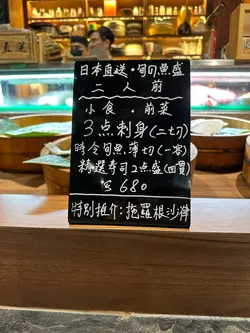 日本直送・旬魚盛
二人前
小食・前菜
3点刺身(二切)
時令旬魚薄切(一客)
精選寿司2点盛(四貫)
680
特別推介:拖羅根沙律